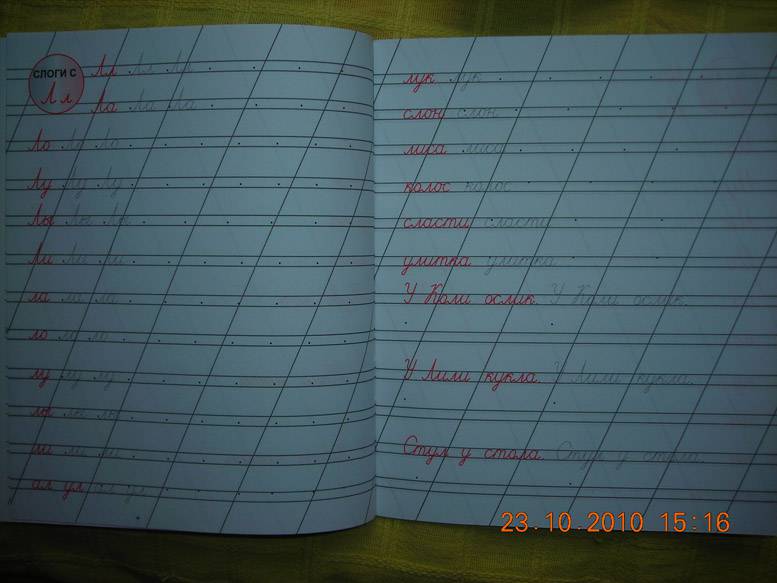 СЛОГИ С
Л л
Лл Лл Лл
Ла Ла Ла
Ло Ло Ло
Лу Лу Лу
Лы Лы Лы
Ли Ли Ли
ла ла ла
ло ло ло
лу лу лу
лы лы лы
ли ли ли
ал ул ал ул
лук лук
слон слон
лиса лиса
колос колос
сласти сласти
улитка улитка
У Коли ослик. У Коли ослик.
У Лили кукла. У Лили кукла.
Стул у стола. Стул у стола.
23.10.2010 15:16